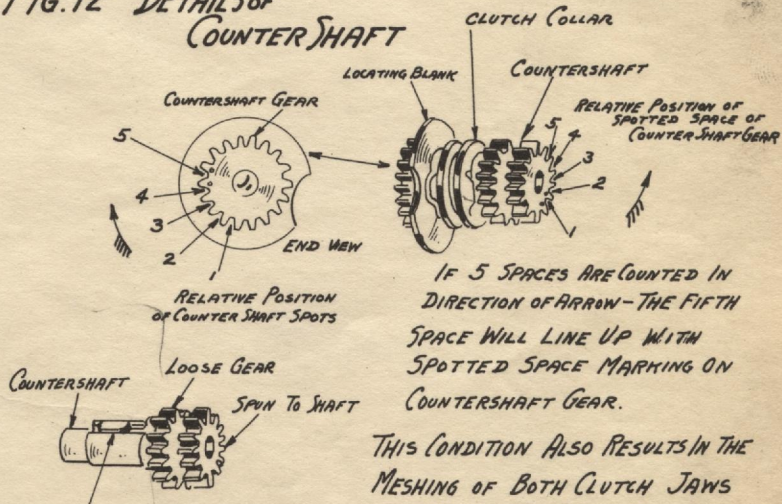 FIG. 12 DETAILS OF
COUNTER SHAFT
CLUTCH COLLAR
LOCATING BLANK
COUNTERSHAFT
COUNTERSHAFT GEAR
RELATIVE POSITION OF
SPOTTED SPACE OF
COUNTER SHAFT GEAR
5
4
3
2
1
END VIEW
5
4
3
2
1
RELATIVE POSITION
OF COUNTER SHAFT SPOTS
IF 5 SPACES ARE COUNTED IN
DIRECTION OF ARROW - THE FIFTH
SPACE WILL LINE UP WITH
SPOTTED SPACE MARKING ON
COUNTERSHAFT GEAR.
THIS CONDITION ALSO RESULTS IN THE
MESHING OF BOTH CLUTCH JAWS
COUNTERSHAFT
LOOSE GEAR
SPUN TO SHAFT